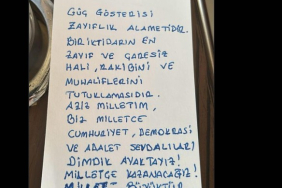 GÜÇ GÖSTERİSİ
ZAYIFLIK ALAMETİDİR.
BİR İKTİDARIN EN
ZAYIF VE ÇARESİZ
HALİ, RAKİBİNİ VE
MUHALİFLERİNİ
TUTUKLAMASIDIR.
AZİZ MİLLETİM,
BİZ MİLLETÇE
CUMHURİYET, DEMOKRASİ
VE ADALET SEVDALILARI
DİMDİK AYAKTAYIZ!
MİLLETÇE KAZANACAĞIZ!
MİLLET BÜYÜKTÜR